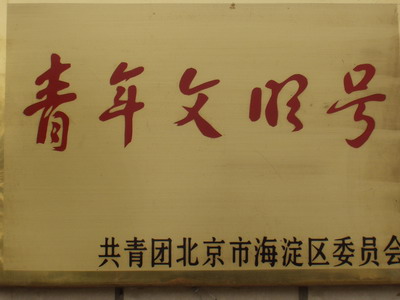 青年文明号
共青团北京市海淀区委员会